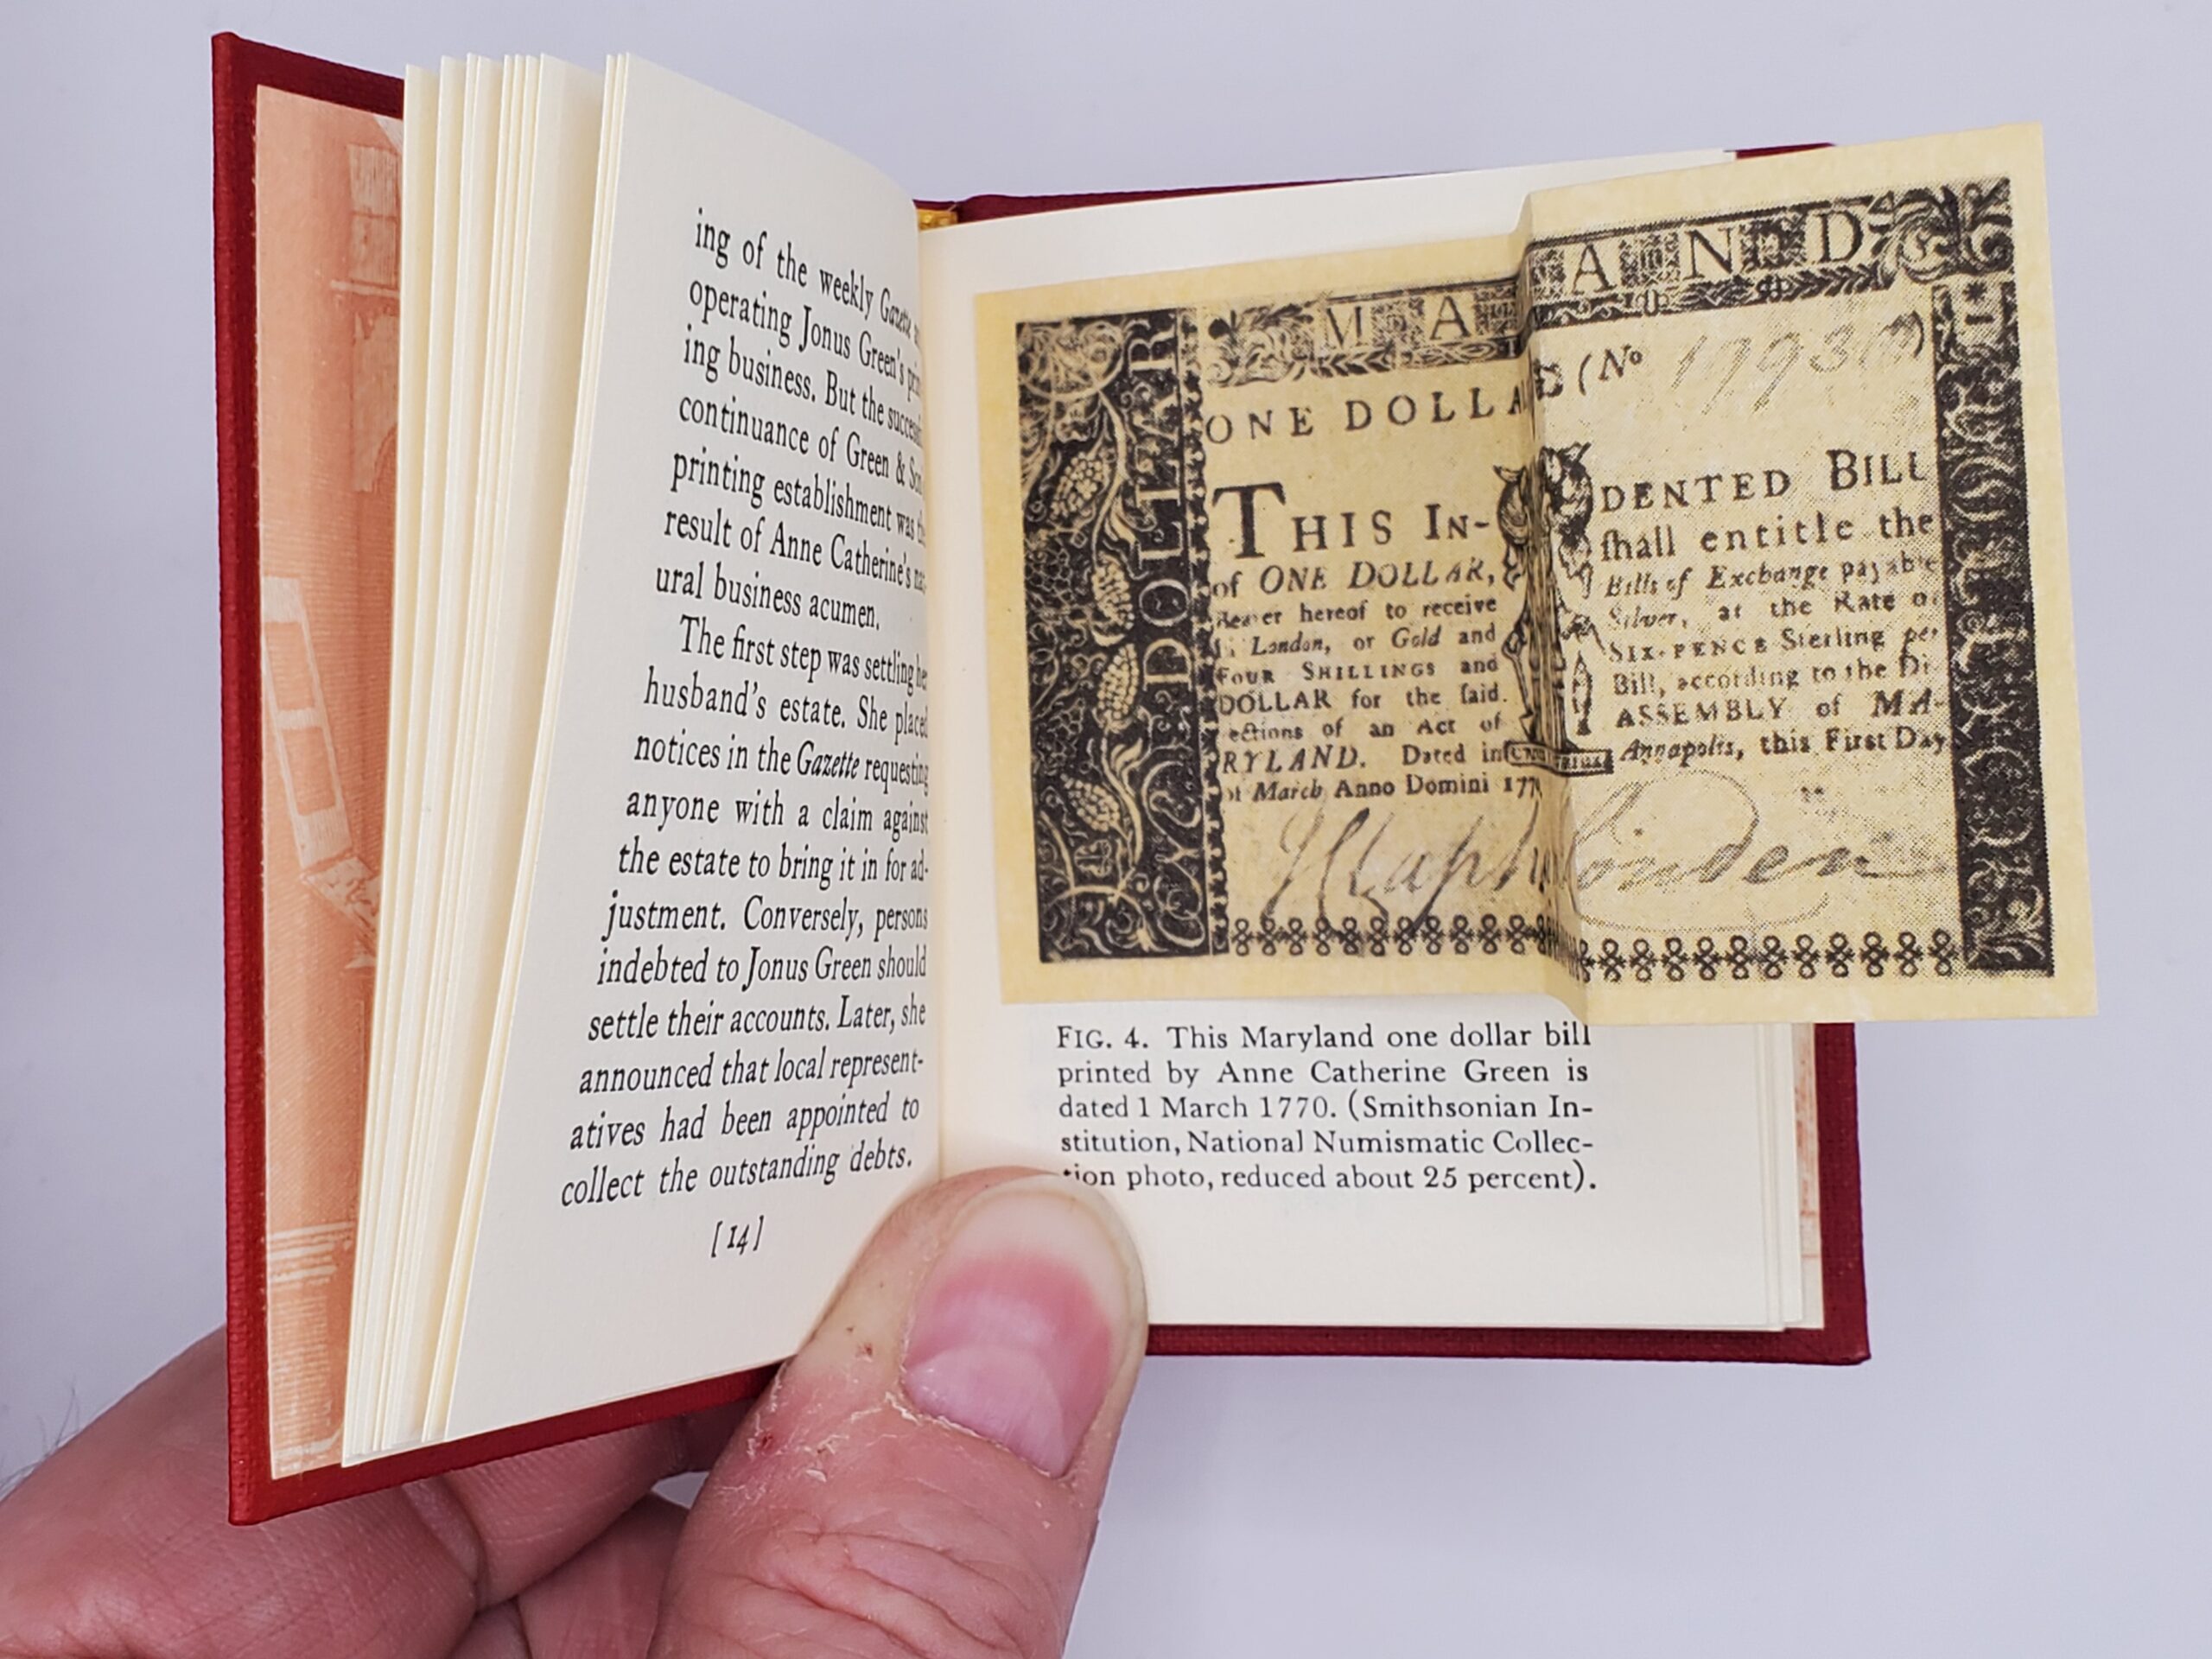 ing of the weekly Gazette
operating Jonus Green's
ing business. But the
continuance of Green &
printing establishment was
result of Anne Catherine's
ural business acumen.
The first step was settling
husband's estate. She placed
notices in the Gazette requesting
anyone with a claim against
the estate to bring it in for ad-
justment. Conversely, persons
indebted to Jonus Green should
settle their accounts. Later, she
announced that local represent-
atives had been appointed to
collect the outstanding debts.
[14]
M A A N D
DOLLAR
ONE DOLLA (No
THIS IN- DENTED BILL
of ONE DOLLAR, ſhall entitle the
hereof to receive Bills of Exchange payable
London, or Gold and Silver, at the Rate of
FOUR SHILLINGS and SIX-PENCE Sterling per
DOLLAR for the ſaid Bill, according to the Di-
ections of an Act of ASSEMBLY of MA-
RYLAND. Dated in Annapolis, this First Day
of March Anno Domini 177
FIG. 4. This Maryland one dollar bill
printed by Anne Catherine Green is
dated 1 March 1770. (Smithsonian In-
stitution, National Numismatic Collec-
tion photo, reduced about 25 percent).